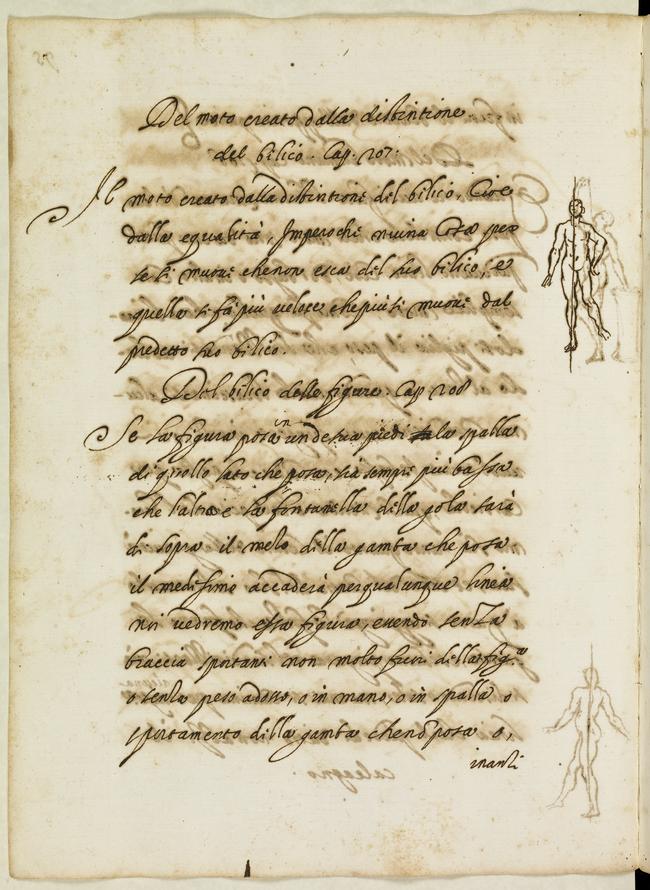 Del moto creato dalla distintione
del bilico. Cap. 207.
Il moto creato dalla distintione del bilico, Cioe
dalla equalità, Imperoche niuna Cosa per
se si muove che non esca del suo bilico, e
quella si fa più veloce che più si muove dal
predetto suo bilico.
Del bilico delle figure. Cap 208
Se la figura posa in un de sua piedi la spalla
di quello lato che posa, sia sempre più bassa
che l'altra e la fontanella della gola sarà
di sopra il mezo della gamba che posa
il medesimo accaderà per qualunque linea
noi vedremo essa figura, essendo senza
braccia sportanti non molto fuori della fig.ra
o senza peso adosso, o in mano, o in spalla o
sportamento della gamba che nõ posa o,
inanzi